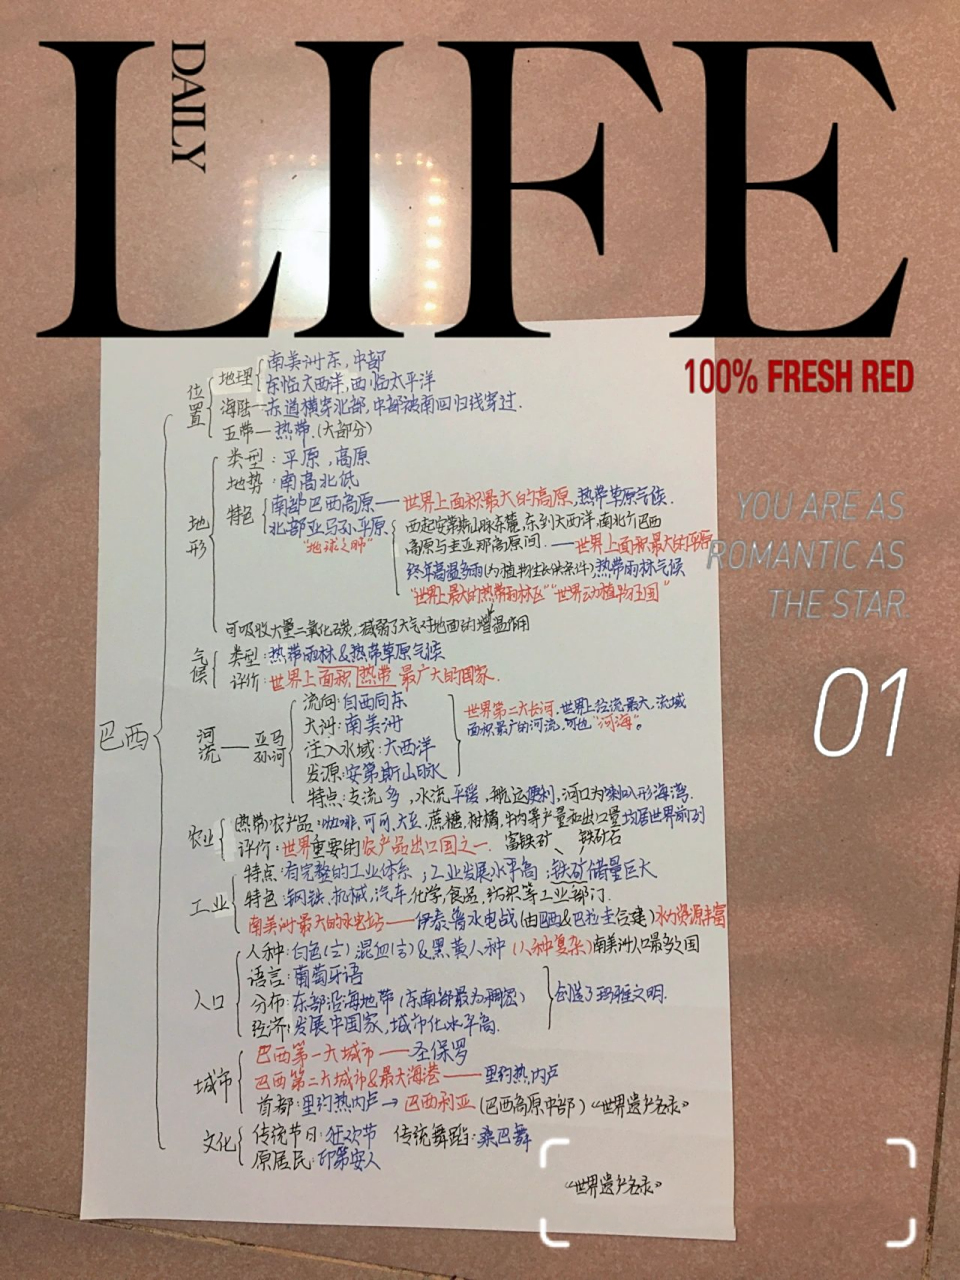 LIFE
DAILY
100% FRESH RED
YOU ARE AS
ROMANTIC AS
THE STAR
01
巴西
位置
地理
南美洲东,中部
东临大西洋,西临太平洋
海陆—赤道横穿北部,中部被南回归线穿过.
五带—热带.(大部分)
地形
类型:平原,高原
地势:南高北低
特色
南部巴西高原——世界上面积最大的高原,热带草原气候.
北部亚马孙平原
"地球之肺"
西起安第斯山脉东麓,东到大西洋,南北介巴西
高原与圭亚那高原间.——世界上面积最大的平原
终年高温多雨(为植物生长供条件)热带雨林气候
"世界上最大的热带雨林区""世界动植物王国"
可吸收大量二氧化碳,减弱了大气对地面的增温作用
气候
类型:热带雨林&热带草原气候
评价:世界上面积热带最广大的国家.
河流——亚马孙河
流向:自西向东
大洲:南美洲
注入水域:大西洋
发源:安第斯山脉
特点:支流多,水流平缓,航运便利,河口为喇叭形海湾.
世界第二大长河.世界上拉流最大,流域
面积最广的河流,可也"河海"。
农业
热带农产品:咖啡,可可,大豆,蔗糖,柑橘,牛肉等产量和出口量均居世界前列
评价:世界重要的农产品出口国之一.
富铁矿、铁矿石
工业
特点:有完整的工业体系;工业发展水平高;铁矿储量巨大
特色:钢铁,机械,汽车,化学,食品,纺织等工业部门.
南美洲最大的水电站——伊泰普水电战(由巴西&巴拉圭合建)水力资源丰富
人口
人种:白色(主)混血(主)&黑黄人种(人种复杂)南美洲人口最多之国
语言:葡萄牙语
分布:东部沿海地带(东南部最为稠密)
经济:发展中国家,城市化水平高.
创造了玛雅文明.
城市
巴西第一大城市——圣保罗
巴西第二大城市&最大海港——里约热内卢
首都:里约热内卢→巴西利亚(巴西高原中部)《世界遗产名录》
文化
传统节日:狂欢节 传统舞蹈:桑巴舞
原居民:印第安人
《世界遗产名录》